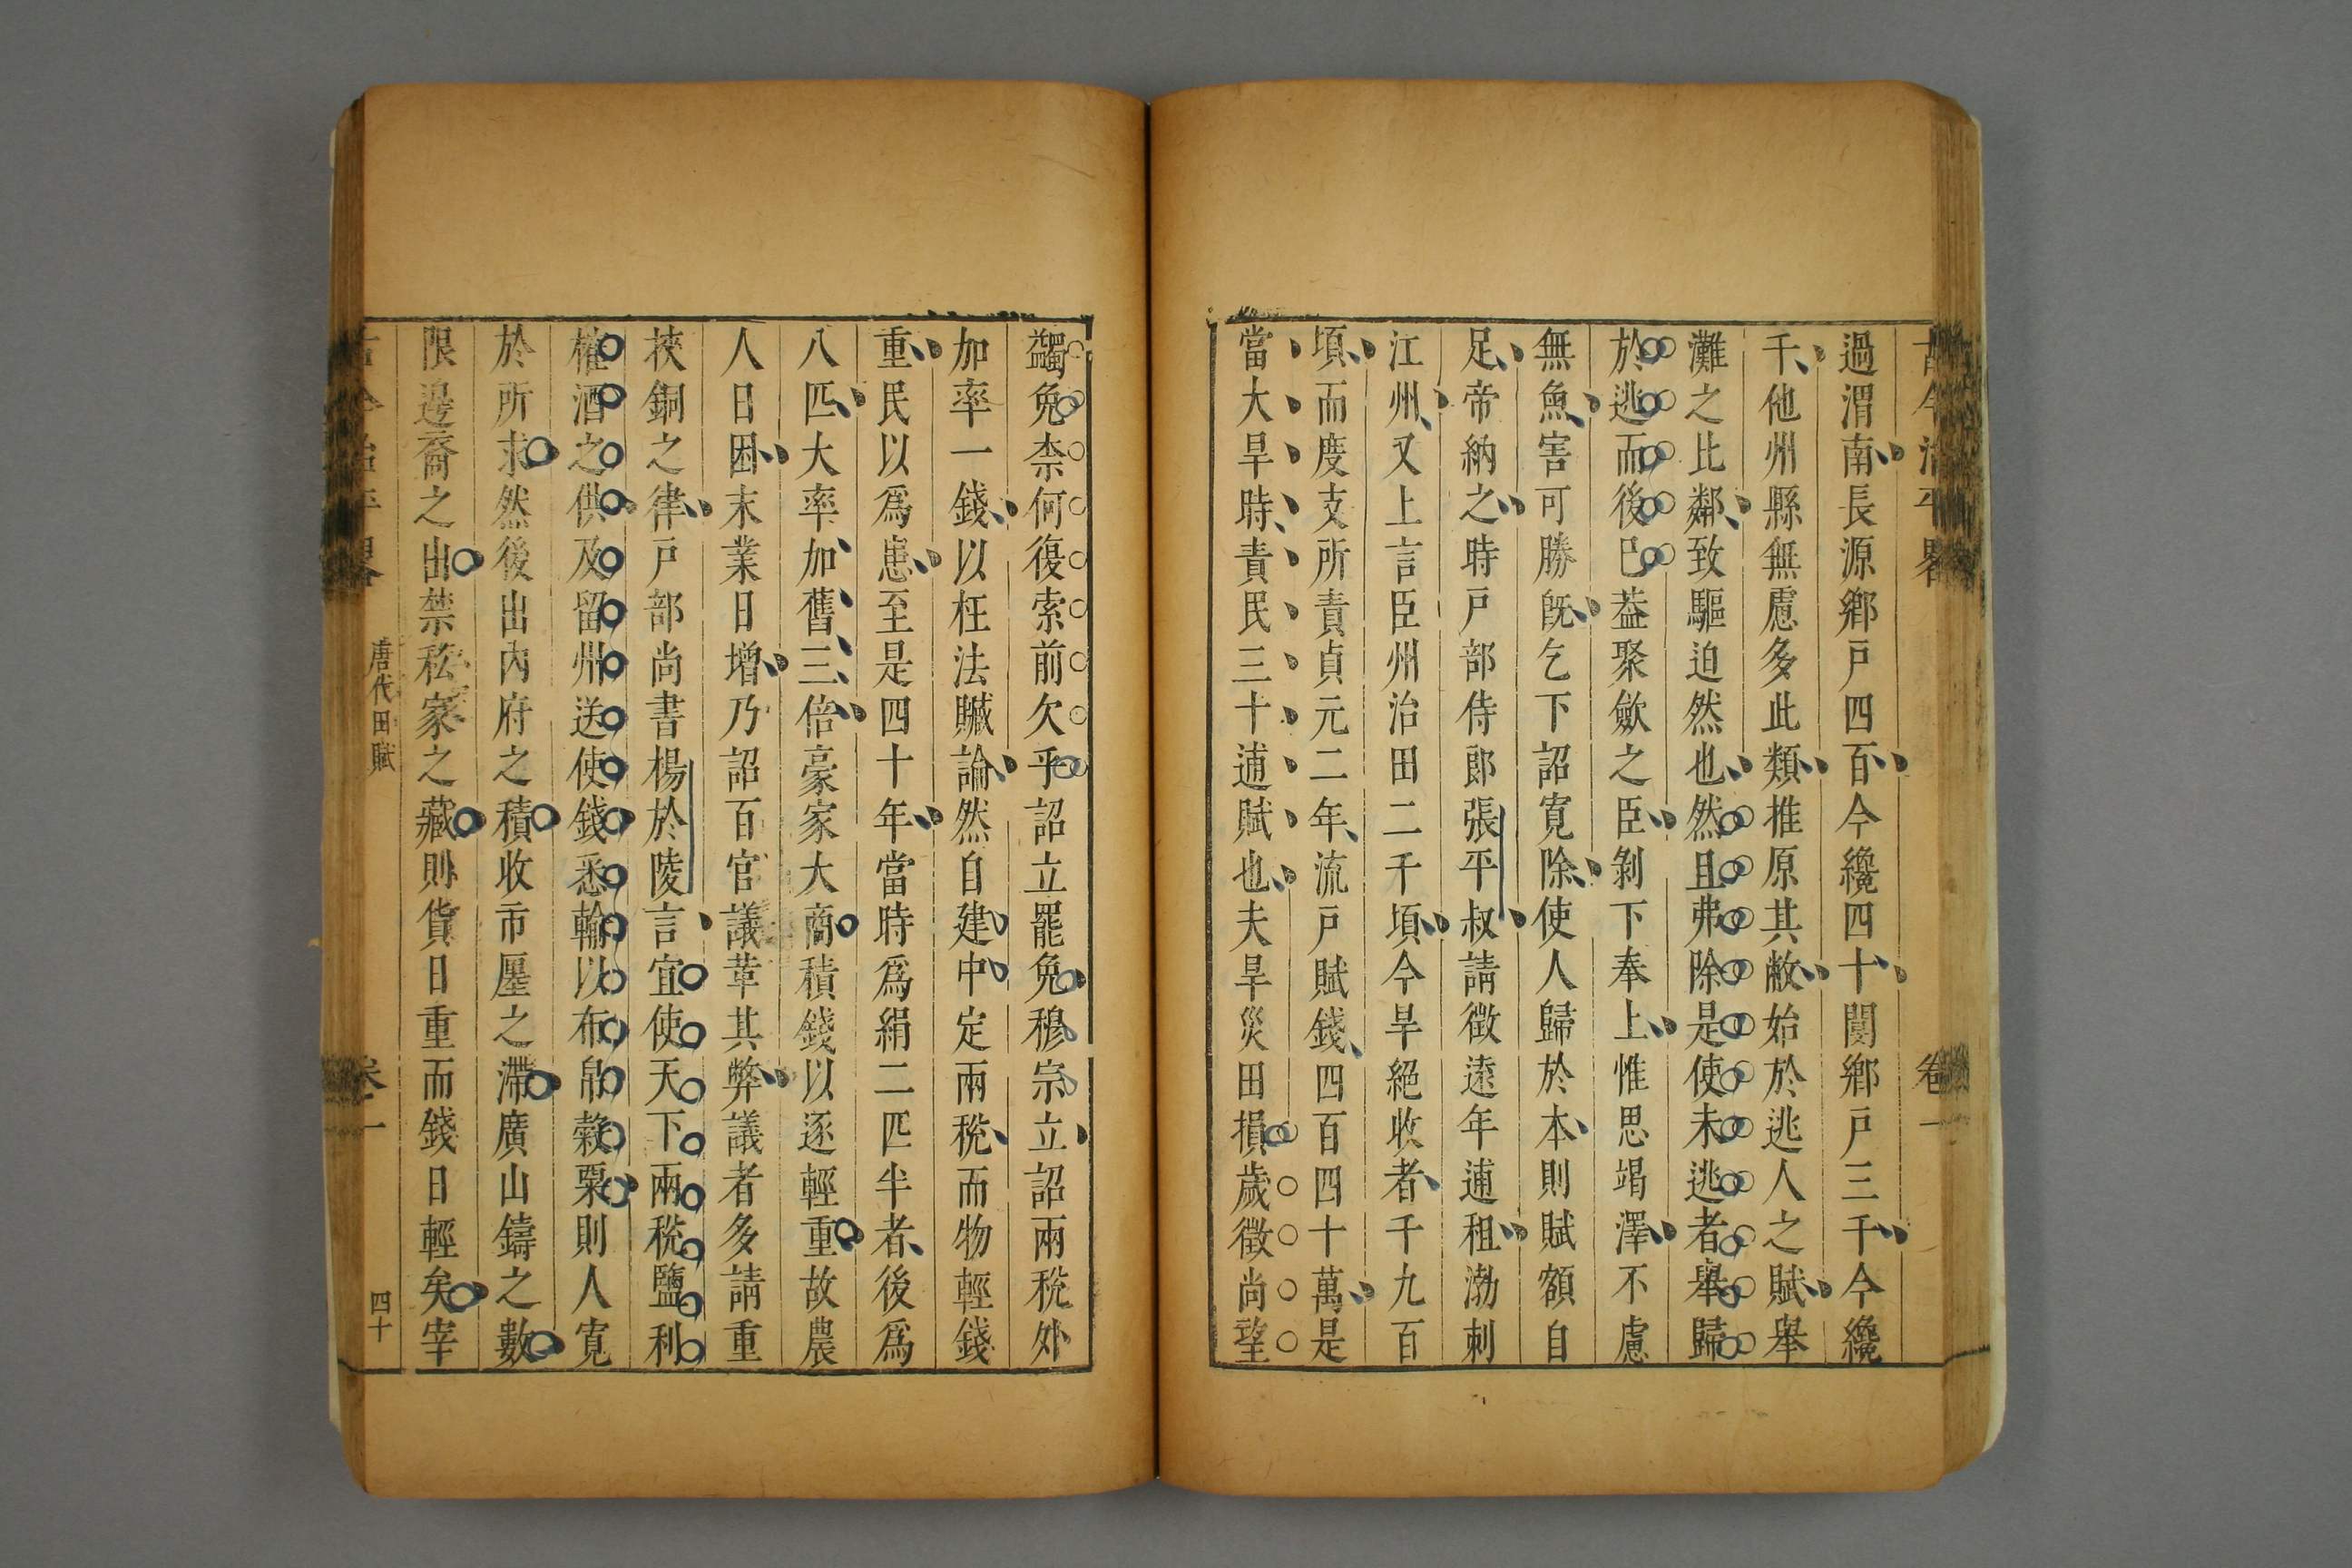 古今治平畧 卷一
過渭南長源鄉戸四百今纔四十闅鄉戸三千今纔
千他州縣無慮多此類推原其敝始於逃人之賦舉
灘之比鄰致驅迫然也然且弗除是使未逃者舉歸
於逃而後已葢聚歛之臣剝下奉上惟思竭澤不慮
無魚害可勝旣乞下詔寛除使人歸於本則賦額自
足帝納之時戸部侍郎張平叔請徵遠年逋租渤刺
江州又上言臣州治田二千頃今旱絕收者千九百
頃而度支所責貞元二年流戸賦錢四百四十萬是
當大旱時責民三十逋賦也夫旱災田損歲徵尚望
蠲免柰何復索前欠乎詔立罷免穆宗立詔兩稅外
加率一錢以枉法贓論然自建中定兩稅而物輕錢
重民以爲患至是四十年當時爲絹二匹半者後爲
八匹大率加舊三倍豪家大商積錢以逐輕重故農
人日困末業日增乃詔百官議革其弊議者多請重
挾銅之律戸部尚書楊於陵言宜使天下兩稅鹽利
榷酒之供及留州送使錢悉輸以布帛穀粟則人寛
於所求然後出內府之積收市廛之滯廣山鑄之數
限邊裔之出禁私家之藏則貨日重而錢日輕矣宰
古今治平畧 唐代田賦 卷一 四十